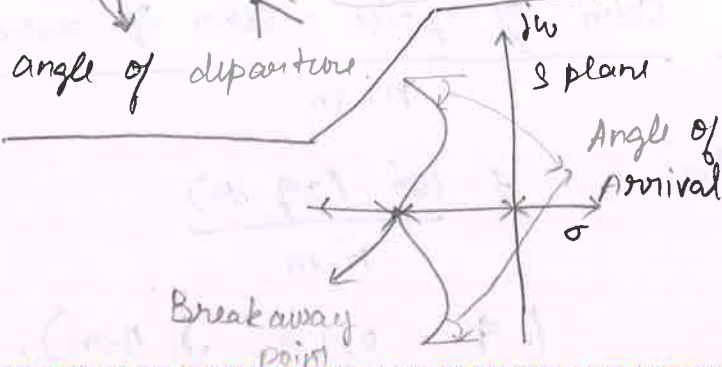 jw
angle of departure
S plane
Angle of
Arrival
σ
Breakaway
point